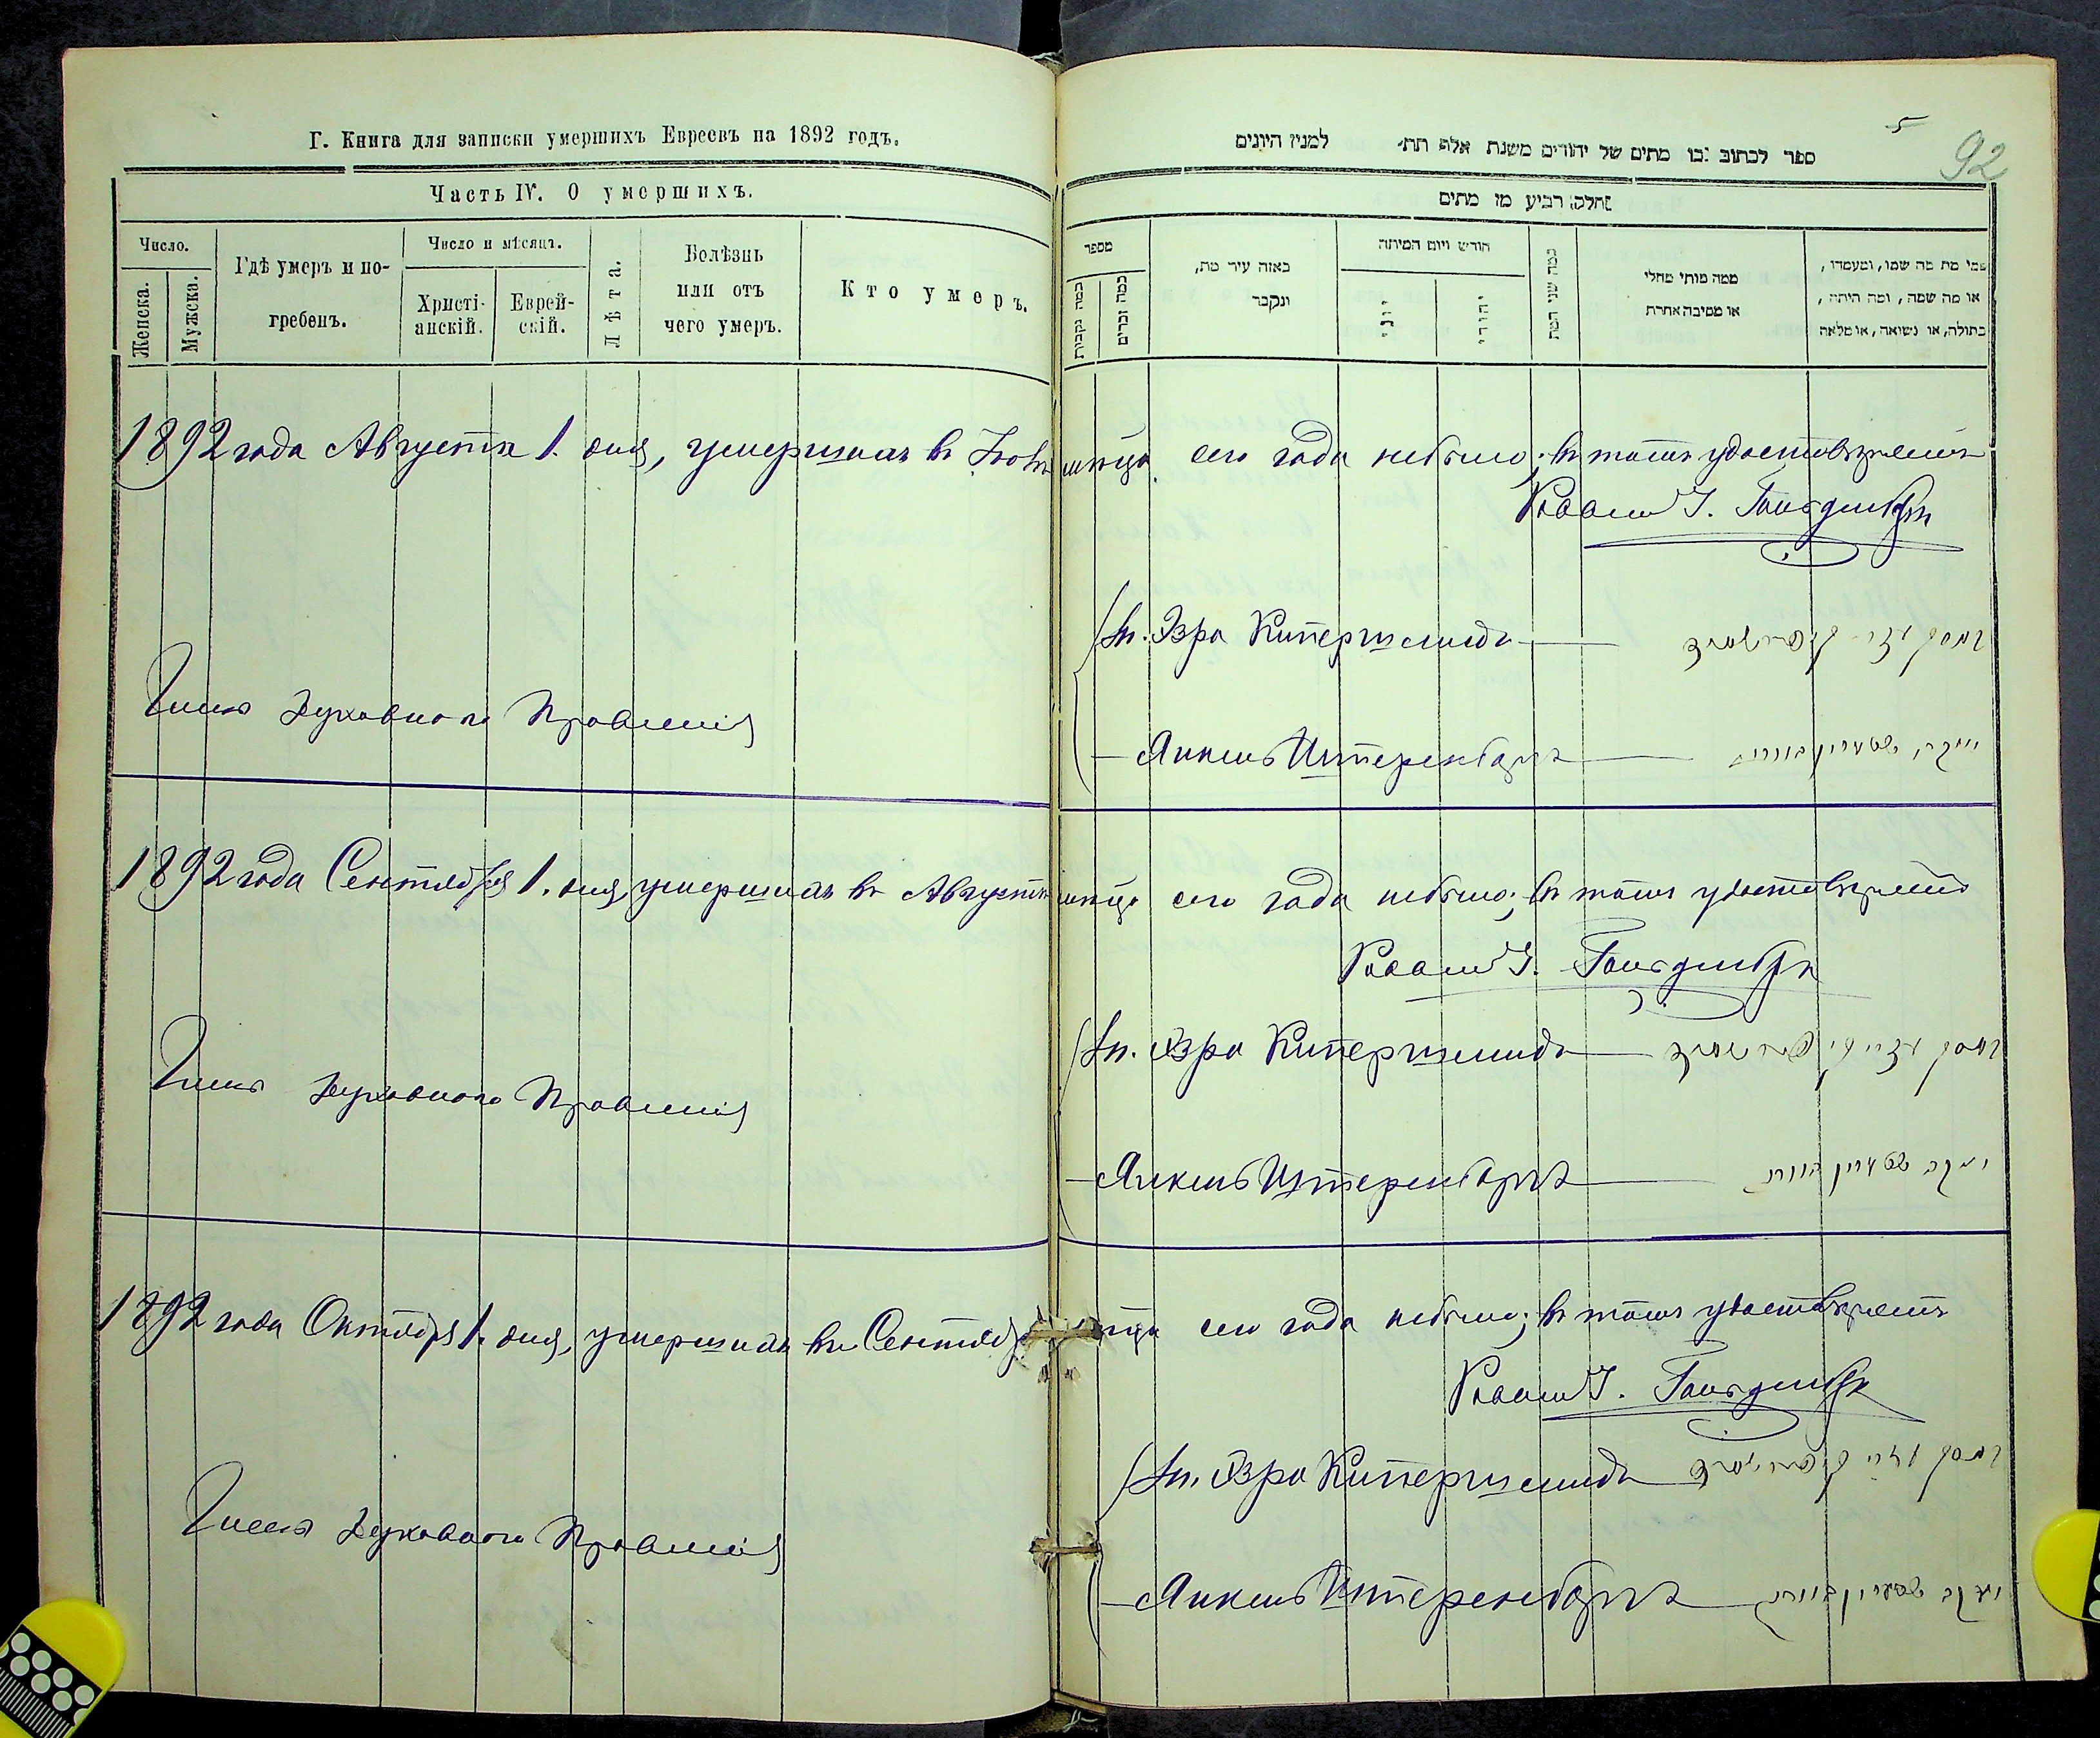 Г. Книга для записки умершихъ Евреевъ на 1892 годъ.
Часть IV. О умершихъ.
Число.
Женска.
Мужска.
Гдѣ умеръ и по-
гребенъ.
Число и мѣсяцъ.
Христі-
анскій.
Еврей-
скій.
Лѣта.
Болѣзнь
или отъ
чего умеръ.
Кто умеръ.
5
92
ספר לכתוב בו מתים של יהודים משנת אלף תת׳ למנין היונים
חלק רביע מן מתים
מספר
כמה נקבות
כמה זכרים
באזה עיר מת,
ונקבר
חודש ויום המיתה
יוני
יהודי
כמה שני המת
ממה מותי מחלי
או מסיבה אחרת
מי מת מה שמו, ומעמדו,
או מה שמה, ומה היתה,
בתולה, או נשואה, או מלאה
1892 года Августа 1. дня, умершихъ въ мѣсяцѣ сего года небыло; въ томъ удостовѣряемъ
Раввинъ
Эзра Купершмидъ
Члены Духовнаго Правленія
Янкель Штеренбаргъ
1892 года Сентября 1. дня, умершихъ въ Августѣ мѣсяцѣ сего года небыло; въ томъ удостовѣряемъ
Раввинъ
Эзра Купершмидъ
Члены Духовнаго Правленія
Янкель Штеренбаргъ
1892 года Октября 1. дня, умершихъ въ Сентябрѣ сего года небыло; въ томъ удостовѣряемъ
Раввинъ
Эзра Купершмидъ
Члены Духовнаго Правленія
Янкель Штеренбаргъ